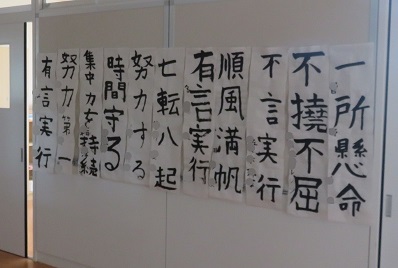 一所懸命
不撓不屈
不言実行
順風満帆
有言実行
七転八起
努力する
時間守る
集中力を持続
努力第一
有言実行